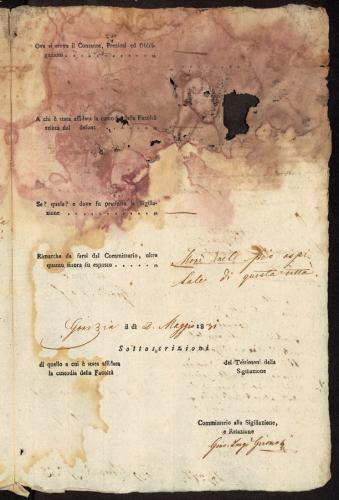 Ove si trova il Contante, Preziosi ed Obbli-
gazioni
A chi è stata affidata la custodia della Facoltà
relitta dal defont
Se? quale? e dove fu praticata la Sigilla-
zione
Rimarche da farsi dal Commissario, oltre
quanto finora fu esposto
Morì nell' pio ospi-
tale di questa città.
Gorizia il dì 2. Maggio 1831
Sottoscrizioni
di quello a cui è stata affidata
la custodia della Facoltà
dei Testimoni della
Sigillazione
Commissario alla Sigillazione,
e Relazione